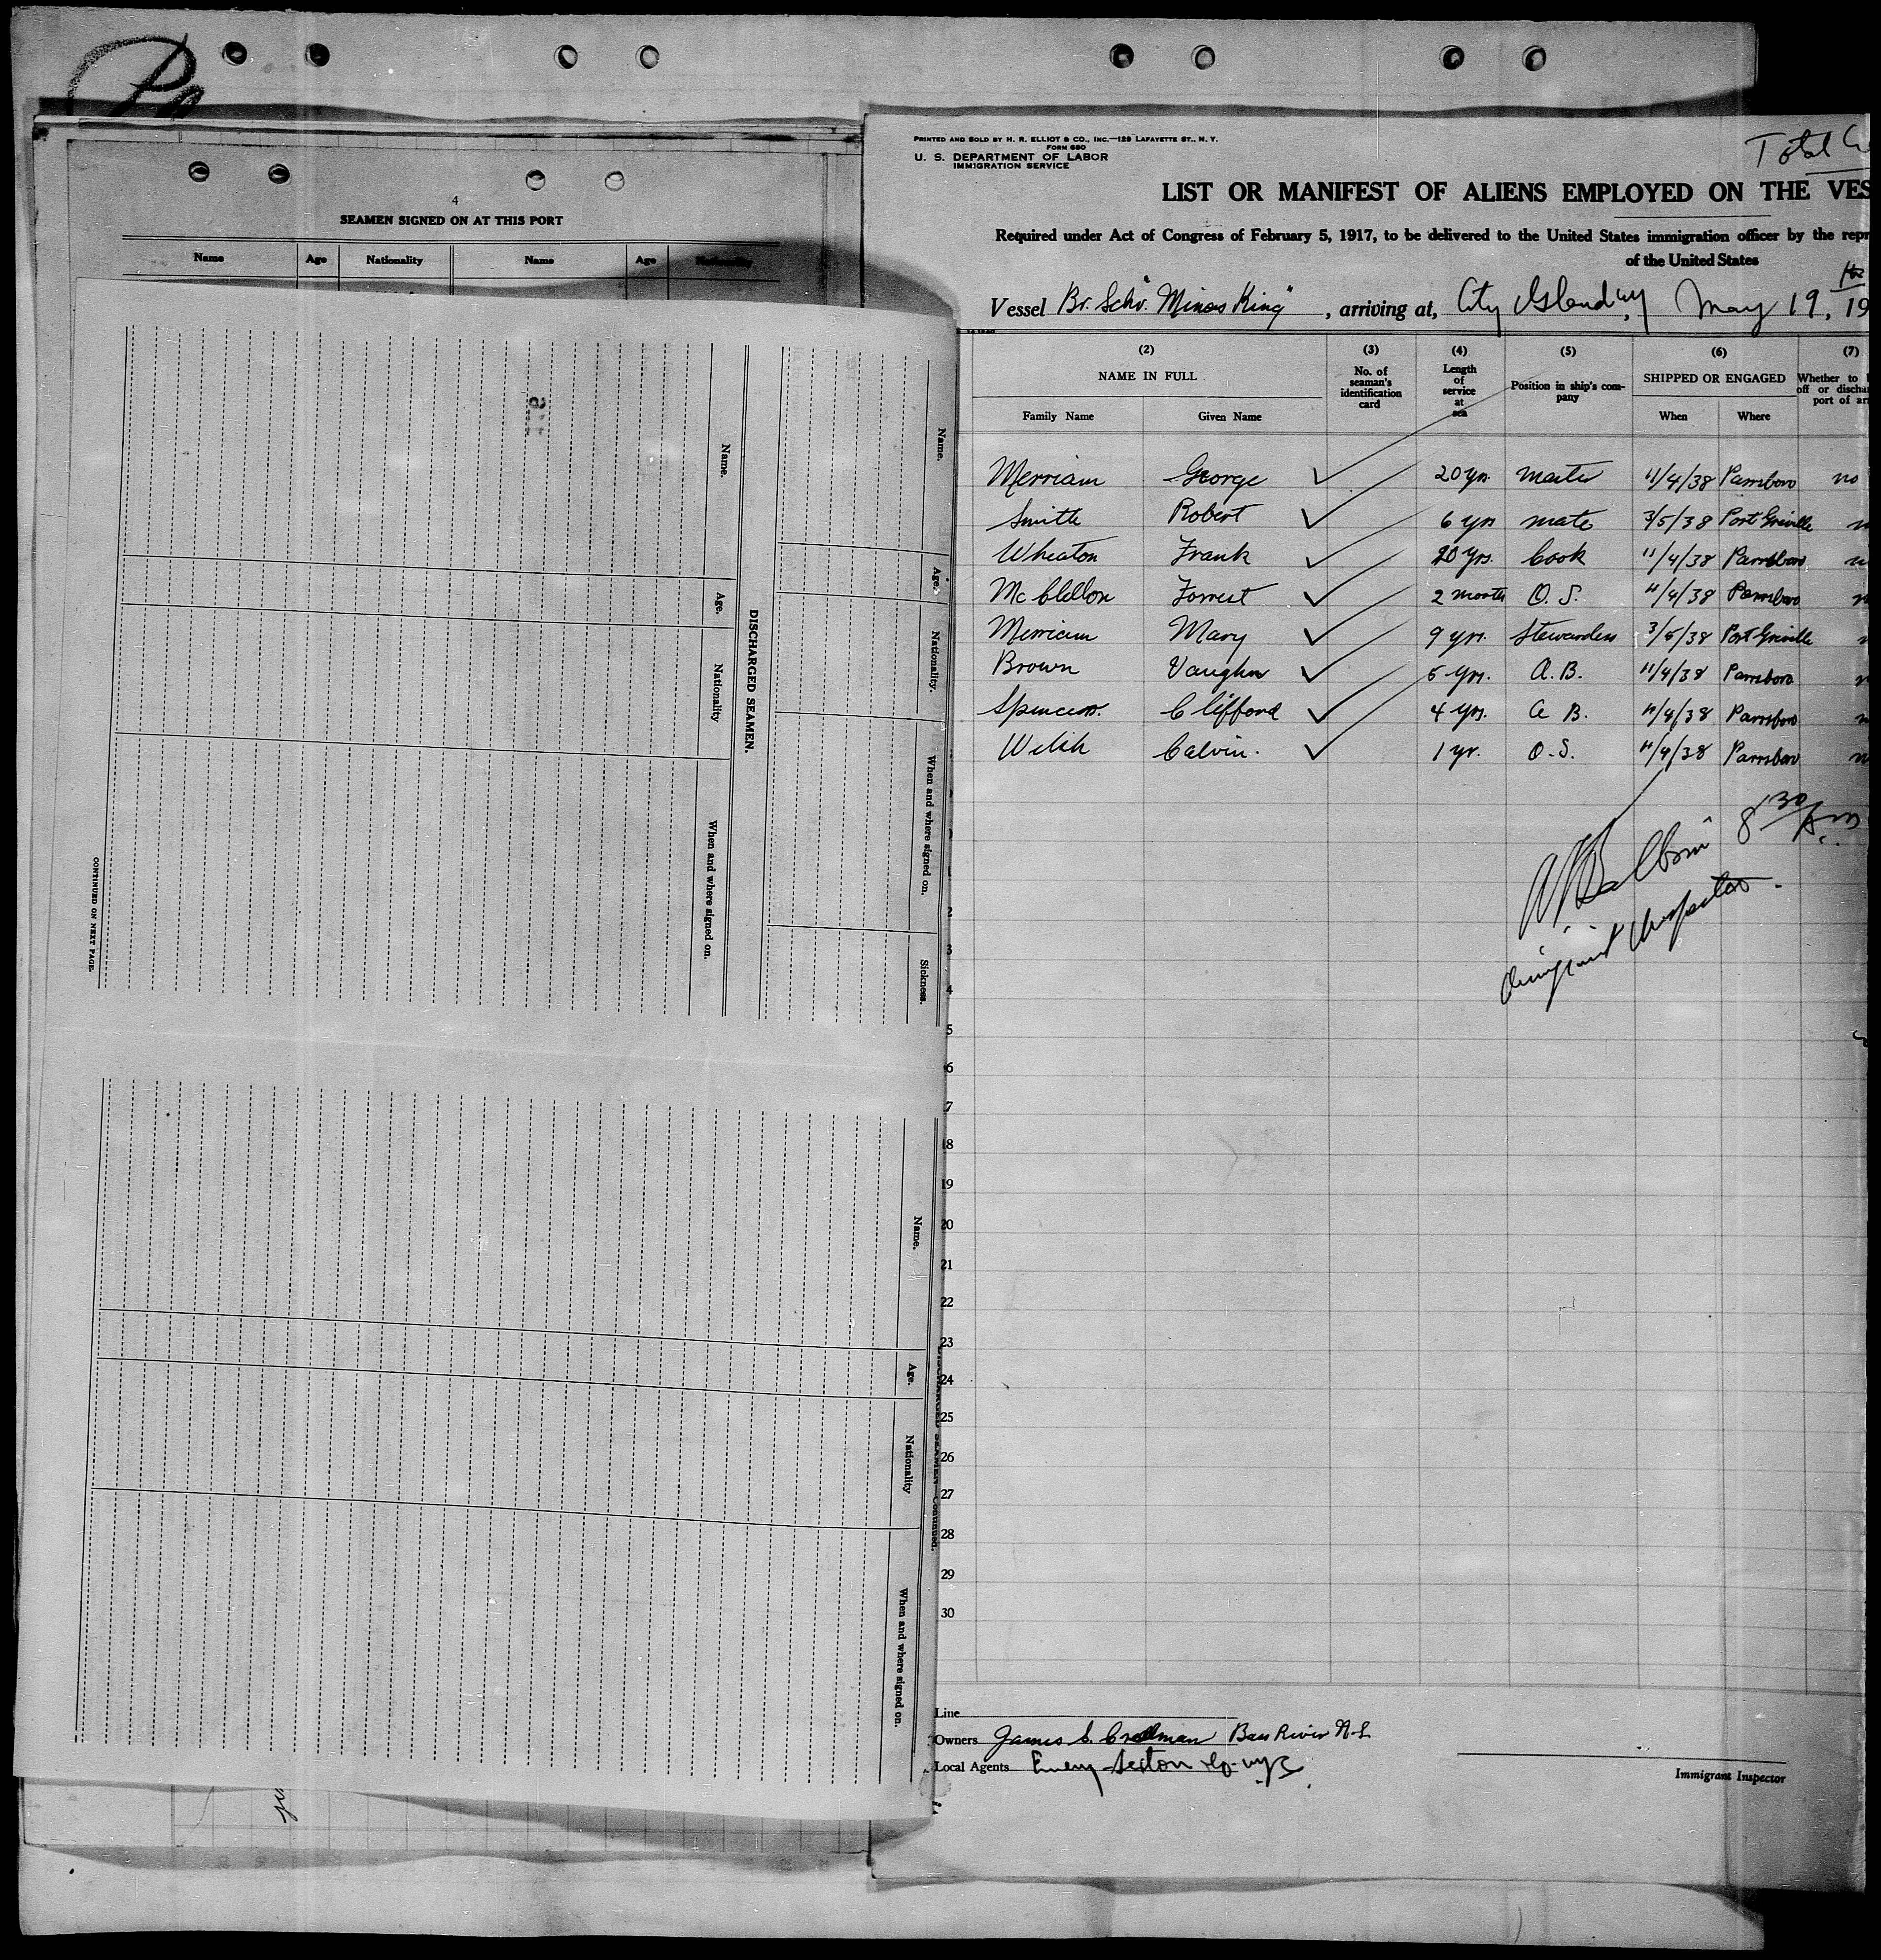 4
SEAMEN SIGNED ON AT THIS PORT
Name Age Nationality Name Age Nationality
Name. Age. Nationality. When and where signed on. Sickness.
DISCHARGED SEAMEN.
Name. Age. Nationality When and where signed on.
CONTINUED ON NEXT PAGE.
Name. Age. Nationality When and where signed on.
PRINTED AND SOLD BY H. R. ELLIOT & CO., INC.—129 LAFAYETTE ST., N. Y.
FORM 680
U. S. DEPARTMENT OF LABOR
IMMIGRATION SERVICE
Total
LIST OR MANIFEST OF ALIENS EMPLOYED ON THE VES
Required under Act of Congress of February 5, 1917, to be delivered to the United States immigration officer by the repr
of the United States
Vessel Br. Schr. "Minas King", arriving at, City Island, NY May 19, 19
(2) (3) (4) (5) (6) (7)
NAME IN FULL No. of seaman's identification card Length of service at sea Position in ship's company SHIPPED OR ENGAGED Whether to
off or discha
port of ar
Family Name Given Name When Where
Merriam George ✓ 20 yrs. Master 11/4/38 Parrsboro no
Smith Robert ✓ 6 yrs mate 3/5/38 Port Greville
Wheaton Frank ✓ 20 yrs. Cook 11/4/38 Parrsboro
McClellon Forrest ✓ 2 months O. S. 11/4/38 Parrsboro
Merriam Mary ✓ 9 yrs. Stewardess 3/5/38 Port Greville
Brown Vaughn ✓ 5 yrs. A. B. 11/4/38 Parrsboro
Spencer. Clifford ✓ 4 yrs. A B. 11/4/38 Parrsboro
Welsh Calvin. ✓ 1 yr. O. S. 11/4/38 Parrsboro
8 30 Am
Immigrant Inspector.
2
3
4
5
6
7
18
19
20
21
22
23
24
25
26
27
28
29
30
Line
Owners James S. Creelman Bass River N.S.
Local Agents
Immigrant Inspector